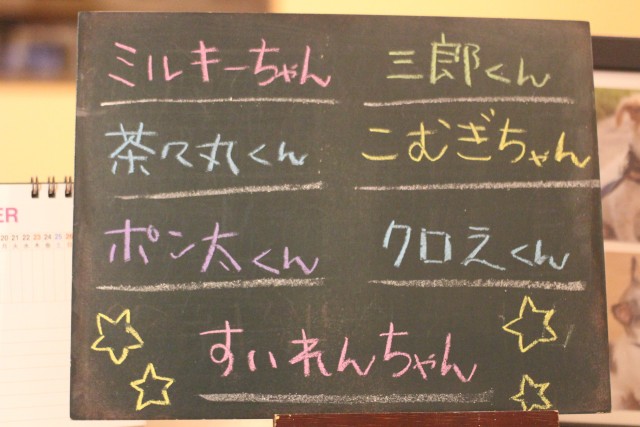 ミルキーちゃん 三郎くん
茶々丸くん こむぎちゃん
ポン太くん クロえくん
すいれんちゃん
ER
20 21 22 23 24 25 26